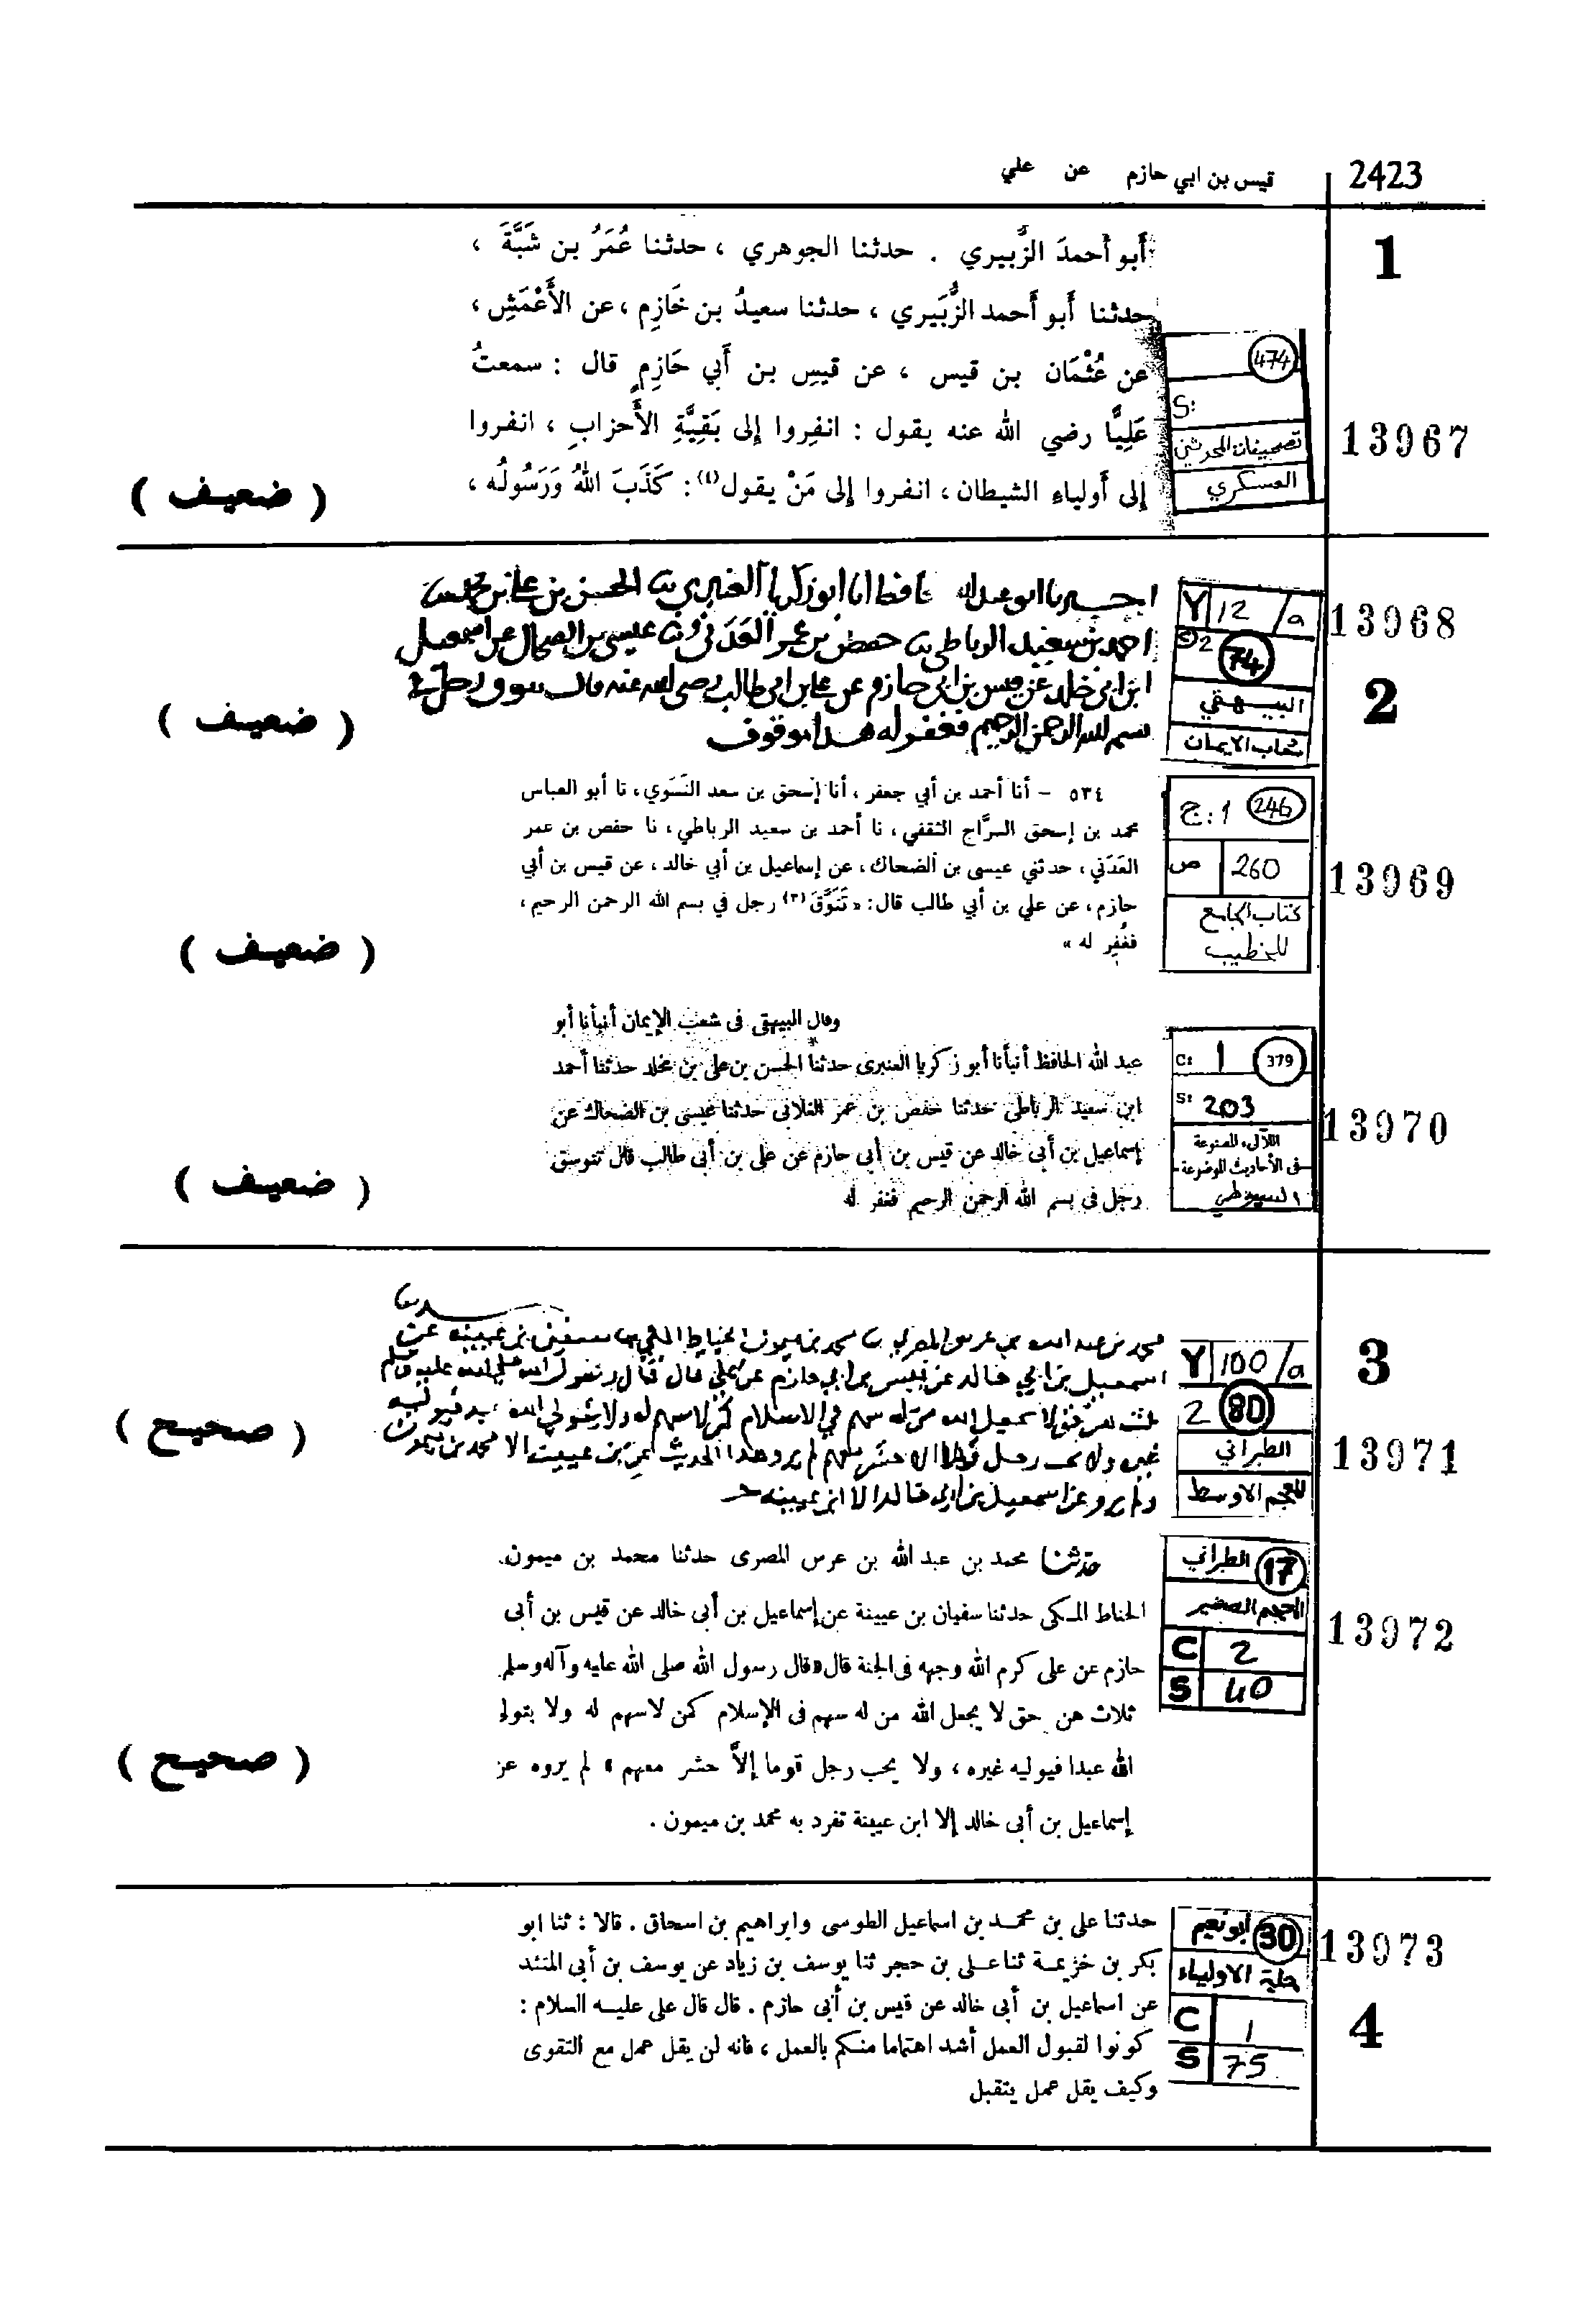 2423
قيس بن ابي حازم عن علي
1
أبو أحمدَ الزُّبيري . حدثنا الجوهري ، حدثنا عُمَرُ بـن شَبَّةَ ،
حدثنا أَبو أَحمد الزُّبَيري ، حدثنا سعيدُ بـن خَازِم ، عن الأَعْمَشِ ،
عن عُثْمَان بـن قيس ، عن قيسِ بـن أَبي حَازِمٍ قال : سمعتُ
عَلِيًّا رضي الله عنه يقول : انفِروا إلى بَقِيَّةِ الأَحزابِ ، انفروا
إلى أَولياءِ الشيطان ، انفروا إلى مَنْ يقول(٤) : كَذَبَ اللهُ وَرَسُولُه ،
474
S:
تصحيفات المحدثين
العسكري
13967
( ضعيـف )
13968
2
Y 12 /a
2 74
البيـهـقي
شعاب الايمان
احمد بن سعيد الرباطي حفص بن عمر العدني عيسى بن الضحاك عن اسمعيل
ابن ابي خالد عن قيس بن ابي حازم عن علي بن ابي طالب رضي الله عنه قال رجل في
بسم الله الرحمن الرحيم فغفر له هذا موقوف
( ضعيـف )
٥٣٤ - أنا أحمد بن أبي جعفر ، أنا إسحق بن سعد النَسَوي ، نا أبو العباس
محمد بن إسحق السرَّاج الثقفي ، نا أحمد بن سعيد الرباطي ، نا حفص بن عمر
العَدَني ، حدثني عيسى بن الضحاك ، عن إسماعيل بن أبي خالد ، عن قيس بن أبي
حازم ، عن علي بن أبي طالب قال : « تَنَوَّقَ(٣) رجل في بسم الله الرحمن الرحيم ،
فغُفِر له »
ج : 1 246
ص 260
كتاب الجامع
للخطيب
13969
( ضعيـف )
وقال البيهقى فى شعب الإيمان أنبأنا أبو
عبد الله الحافظ أنبأنا أبو زكريا العنبرى حدثنا الحسن بن على بن مخلد حدثنا أحمد
ابن سعيد الرباطى حدثنا حفص بن عمر حدثنا عيسى بن الضحاك عن
إسماعيل بن أبى خالد عن قيس بن أبى حازم عن على بن أبى طالب قال تنوق
رجل فى بسم الله الرحمن الرحيم فغفر له
C: 1 379
S: 203
اللآلىء المصنوعة
فى الأحاديث الموضوعة
السيوطي
13970
( ضعيـف )
3
محمد بن عبد الله بن عرس المصري محمد بن ميمون الخياط المكي سفين بن عيينه عن
اسمعيل بن ابي خالد عن قيس بن ابي حازم عن علي قال قال رسول الله صلى الله عليه وسلم
ثلث هن حق لا يجعل الله من له سهم في الاسلام كمن لا سهم له ولا يتولى الله عبد فيوليه
غيره ولا يحب رجل قوما الا حشر معهم لم يرو هذا الحديث عن بن عيينه الا محمد بن ميمون
ولم يرو عن اسمعيل بن ابي خالد الا ابن عيينه
Y 100 /a
2 80
الطبراني
المعجم الاوسط
13971
( صحيـح )
حدثنا محمد بن عبد الله بن عرس المصرى حدثنا محمد بن ميمون
الخياط المكى حدثنا سفيان بن عيينة عن إسماعيل بن أبى خالد عن قيس بن أبى
حازم عن على كرم الله وجهه فى الجنة قال « قال رسول الله صلى الله عليه وآله وسلم
ثلاث هن حق لا يجعل الله من له سهم فى الإسلام كمن لا سهم له ولا يتولى
الله عبدا فيوليه غيره ، ولا يحب رجل قوما إلاَّ حشر معهم » لم يروه عن
إسماعيل بن أبى خالد إلا ابن عيينة تفرد به محمد بن ميمون .
الطبراني 17
المعجم الصغير
C 2
S 40
13972
( صحيـح )
حدثنا على بن محمـد بن اسماعيل الطوسى وابراهيم بن اسحاق . قالا : ثنا ابو
بكر بن خزيمـة ثنا عـلى بن حجر ثنا يوسف بن زياد عن يوسف بن أبى المتئد
عن اسماعيل بن أبى خالد عن قيس بن أبى حازم . قال قال على عليـه السلام :
كونوا لقبول العمل أشد اهتماما منـكم بالعمل ، فانه لن يقل عمل مع التقوى
وكيف يقل عمل يتقبل
أبو نعيم 30
حلية الاولياء
C 1
S 75
13973
4